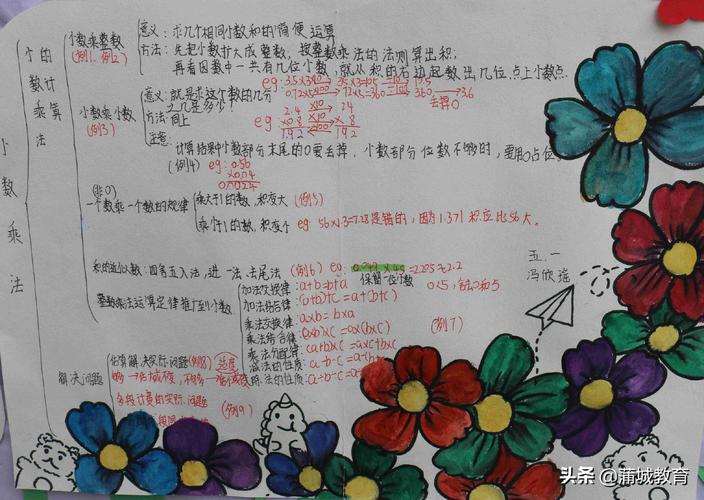 小数乘法
小数的乘法计算
小数乘整数
(例1、例2)
意义：求几个相同小数和的简便运算
方法：先把小数扩大成整数，按整数乘法的法则算出积；
再看因数中一共有几位小数，就从积的右边起数出几位，点上小数点.
小数乘小数
(例3)
意义：就是求这个数的几分之几是多少？
方法：同上
eg:
2.4 ×10 24
×0.8 ×10 × 8
1.92 ÷100 192
去掉0
注意：
计算结果中小数部分末尾的0要去掉，小数部分位数不够的，要用0占位
(例4) eg: 0.56
×0.04
0.0224
(非0)
一个数乘一个数的规律
乘大于1的数，积变大 (例5)
乘小于1的数，积变小 eg: 56×1.3=7.28是错的，因为1.3>1 积应比56大。
积的近似数：四舍五入法，进一法，去尾法 (例6) eg:
保留一位小数
整数乘法运算定律推广到小数
加法交换律：a+b=b+a
加法结合律：(a+b)+c=a+(b+c)
乘法交换律：a×b=b×a
乘法结合律：(a×b)×c=a×(b×c)
(例7)
乘法分配律：
减法的性质：a-b-c=a-(b
解决问题
估算解决实际问题(例8)
分段计费的实际问题
(例9)
五.一
冯欣瑶
头条@蒲城教育